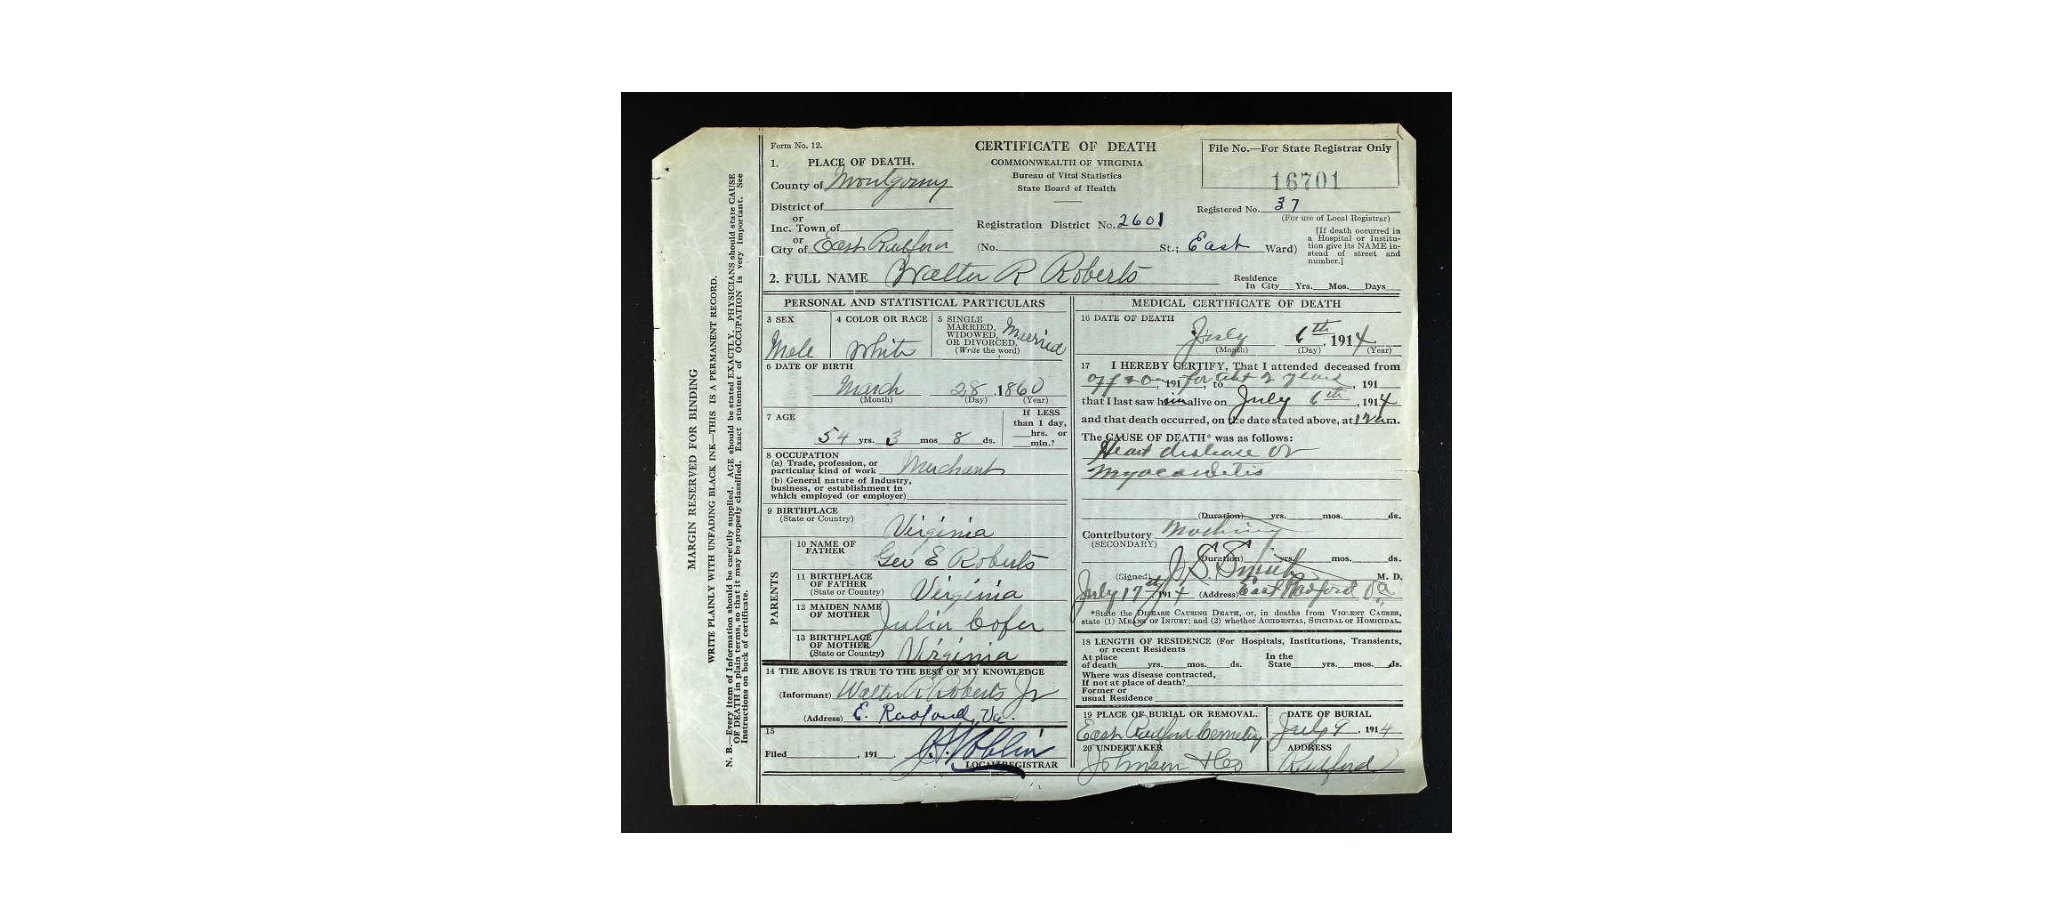 MARGIN RESERVED FOR BINDING
WRITE PLAINLY WITH UNFADING BLACK INK—THIS IS A PERMANENT RECORD.
N. B.—Every item of Information should be carefully supplied. AGE should be stated EXACTLY. PHYSICIANS should state CAUSE
OF DEATH in plain terms, so that it may be properly classified. Exact statement of OCCUPATION is very important. See
Instructions on back of certificate.
Form No. 12.
CERTIFICATE OF DEATH
COMMONWEALTH OF VIRGINIA
Bureau of Vital Statistics
State Board of Health
File No.—For State Registrar Only
16701
1. PLACE OF DEATH.
County of Montgomy
District of
or
Inc. Town of
or
City of East Radford
Registration District No. 2601
Registered No. 37
(For use of Local Registrar)
(No. St.; East Ward)
[If death occurred in
a Hospital or Institu-
tion give its NAME in-
stead of street and
number.]
2. FULL NAME Walter R Roberts
Residence
In City Yrs. Mos. Days
PERSONAL AND STATISTICAL PARTICULARS
3 SEX
Male
4 COLOR OR RACE
White
5 SINGLE
MARRIED,
WIDOWED,
OR DIVORCED.
(Write the word)
Married
6 DATE OF BIRTH
March 28 1860
(Month) (Day) (Year)
7 AGE
54 yrs. 3 mos 8 ds.
If LESS
than 1 day,
hrs. or
min.?
8 OCCUPATION
(a) Trade, profession, or
particular kind of work Merchant
(b) General nature of Industry,
business, or establishment in
which employed (or employer)
9 BIRTHPLACE
(State or Country)
Virginia
PARENTS
10 NAME OF
FATHER
Geo E Roberts
11 BIRTHPLACE
OF FATHER
(State or Country)
Virginia
12 MAIDEN NAME
OF MOTHER
Julia Cofer
13 BIRTHPLACE
OF MOTHER
(State or Country)
Virginia
14 THE ABOVE IS TRUE TO THE BEST OF MY KNOWLEDGE
(Informant) Walter R Roberts Jr
(Address) E. Radford, Va.
15
Filed , 191
LOCAL REGISTRAR
MEDICAL CERTIFICATE OF DEATH
16 DATE OF DEATH
July 6th, 1914
(Month) (Day) (Year)
17 I HEREBY CERTIFY, That I attended deceased from
off & on, 191 for abt 2 years, to , 191
that I last saw him alive on July 6th, 1914
and that death occurred, on the date stated above, at 12 am.
The CAUSE OF DEATH* was as follows:
Heart disease or
myocarditis
(Duration) yrs. mos. ds.
Contributory
(SECONDARY)
(Duration) yrs. mos. ds.
(Signed) J. S. Smith M. D.
July 17th 191 (Address) East Radford Va
*State the DISEASE CAUSING DEATH, or, in deaths from VIOLENT CAUSES,
state (1) MEANS OF INJURY; and (2) whether ACCIDENTAL, SUICIDAL or HOMICIDAL.
18 LENGTH OF RESIDENCE (For Hospitals, Institutions, Transients,
or recent Residents
At place
of death yrs. mos. ds.
In the
State yrs. mos. ds.
Where was disease contracted,
If not at place of death?
Former or
usual Residence
19 PLACE OF BURIAL OR REMOVAL.
East Radford Cemetery
DATE OF BURIAL
July 9, 1914
20 UNDERTAKER
Johnson & Co
ADDRESS
Radford